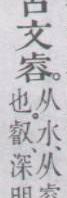 古文睿。
从水、从睿
也。叡、深明